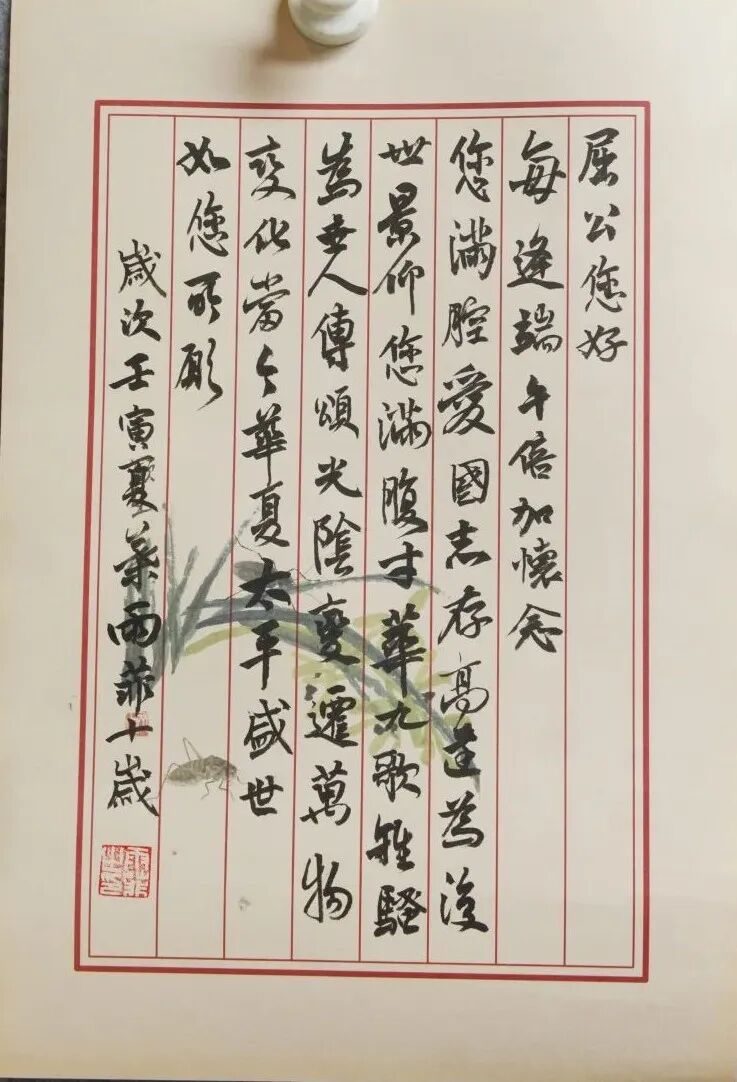 屈公您好
每逢端午倍加懷念
您滿腔愛國志存高遠為後
世景仰您滿腹才華九歌離騷
為世人傳頌光陰變遷萬物
變化當今華夏太平盛世
如您所願
歲次壬寅夏葉雨菲十歲